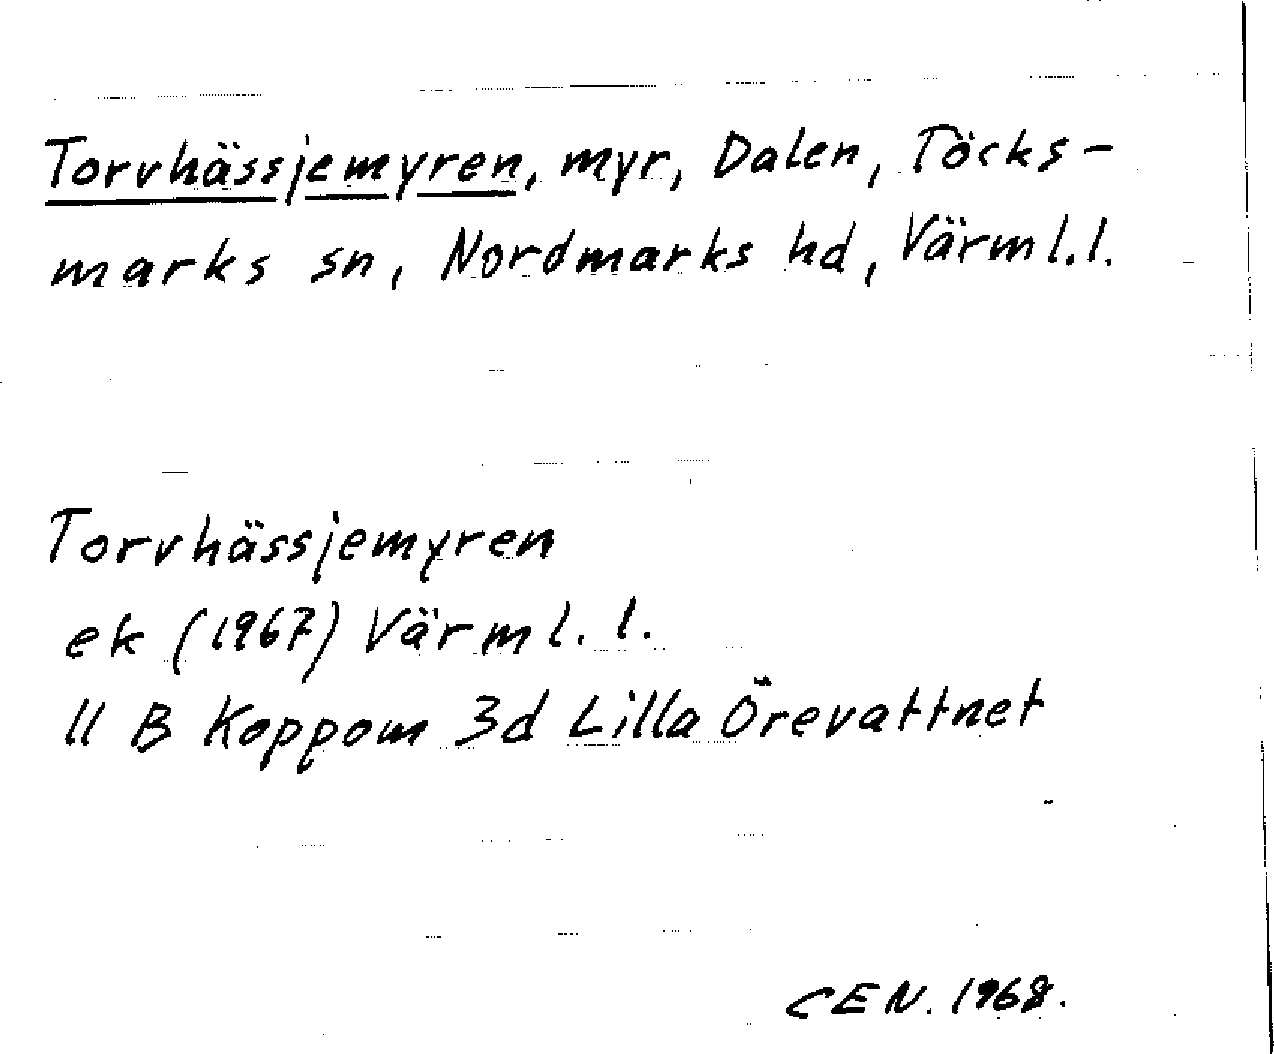 Torvhässjemyren, myr, Dalen, Töcks-
marks sn, Nordmarks hd, Värml.l.
Torvhässjemyren
ek (1967) Värml. l.
11 B Koppom 3d Lilla Örevattnet
CEN. 1968.